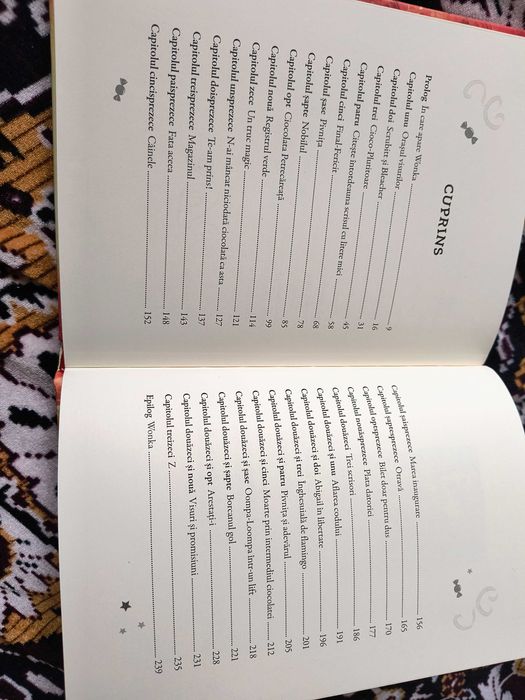 CUPRINS
Prolog In care apare Wonka ... 9
Capitolul unu Orașul visurilor ... 16
Capitolul doi Scrubitt și Bleacher ... 31
Capitolul trei Cioco-Plutitoare ... 45
Capitolul patru Citește întotdeauna scrisul cu litere mici ... 58
Capitolul cinci Final-Fericit ... 68
Capitolul șase Pivnița ... 78
Capitolul șapte Nobilul ... 85
Capitolul opt Ciocolata Petrecăreață ... 99
Capitolul nouă Registrul verde ... 114
Capitolul zece Un truc magic ... 121
Capitolul unsprezece N-ai mâncat niciodată ciocolată ca asta ... 127
Capitolul doisprezece Te-am prins! ... 137
Capitolul treisprezece Magazinul ... 143
Capitolul paisprezece Fata aceea ... 148
Capitolul cincisprezece Câinele ... 152
Capitolul șaisprezece Marea inaugurare ... 156
Capitolul șaptesprezece Otravă ... 165
Capitolul optsprezece Bilet doar pentru dus ... 170
Capitolul nouăsprezece Plata datoriei ... 177
Capitolul douăzeci Trei scrisori ... 186
Capitolul douăzeci și unu Aflarea codului ... 191
Capitolul douăzeci și doi Abigail în libertate ... 196
Capitolul douăzeci și trei Înghesuială de flamingo ... 201
Capitolul douăzeci și patru Pivnița și adevărul ... 205
Capitolul douăzeci și cinci Moarte prin intermediul ciocolatei ... 212
Capitolul douăzeci și șase Oompa-Loompa într-un lift ... 218
Capitolul douăzeci și șapte Borcanul gol ... 221
Capitolul douăzeci și opt Arestați-i ... 228
Capitolul douăzeci și nouă Visuri și promisiuni ... 231
Capitolul treizeci Z ... 235
Epilog Wonka ... 239